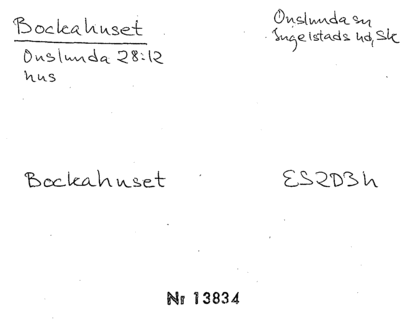 Bockahuset
Onslunda sn
Ingelstads hd, Sk
Onslunda 28:12
hus
Bockahuset
ES2D3h
Nr 13834